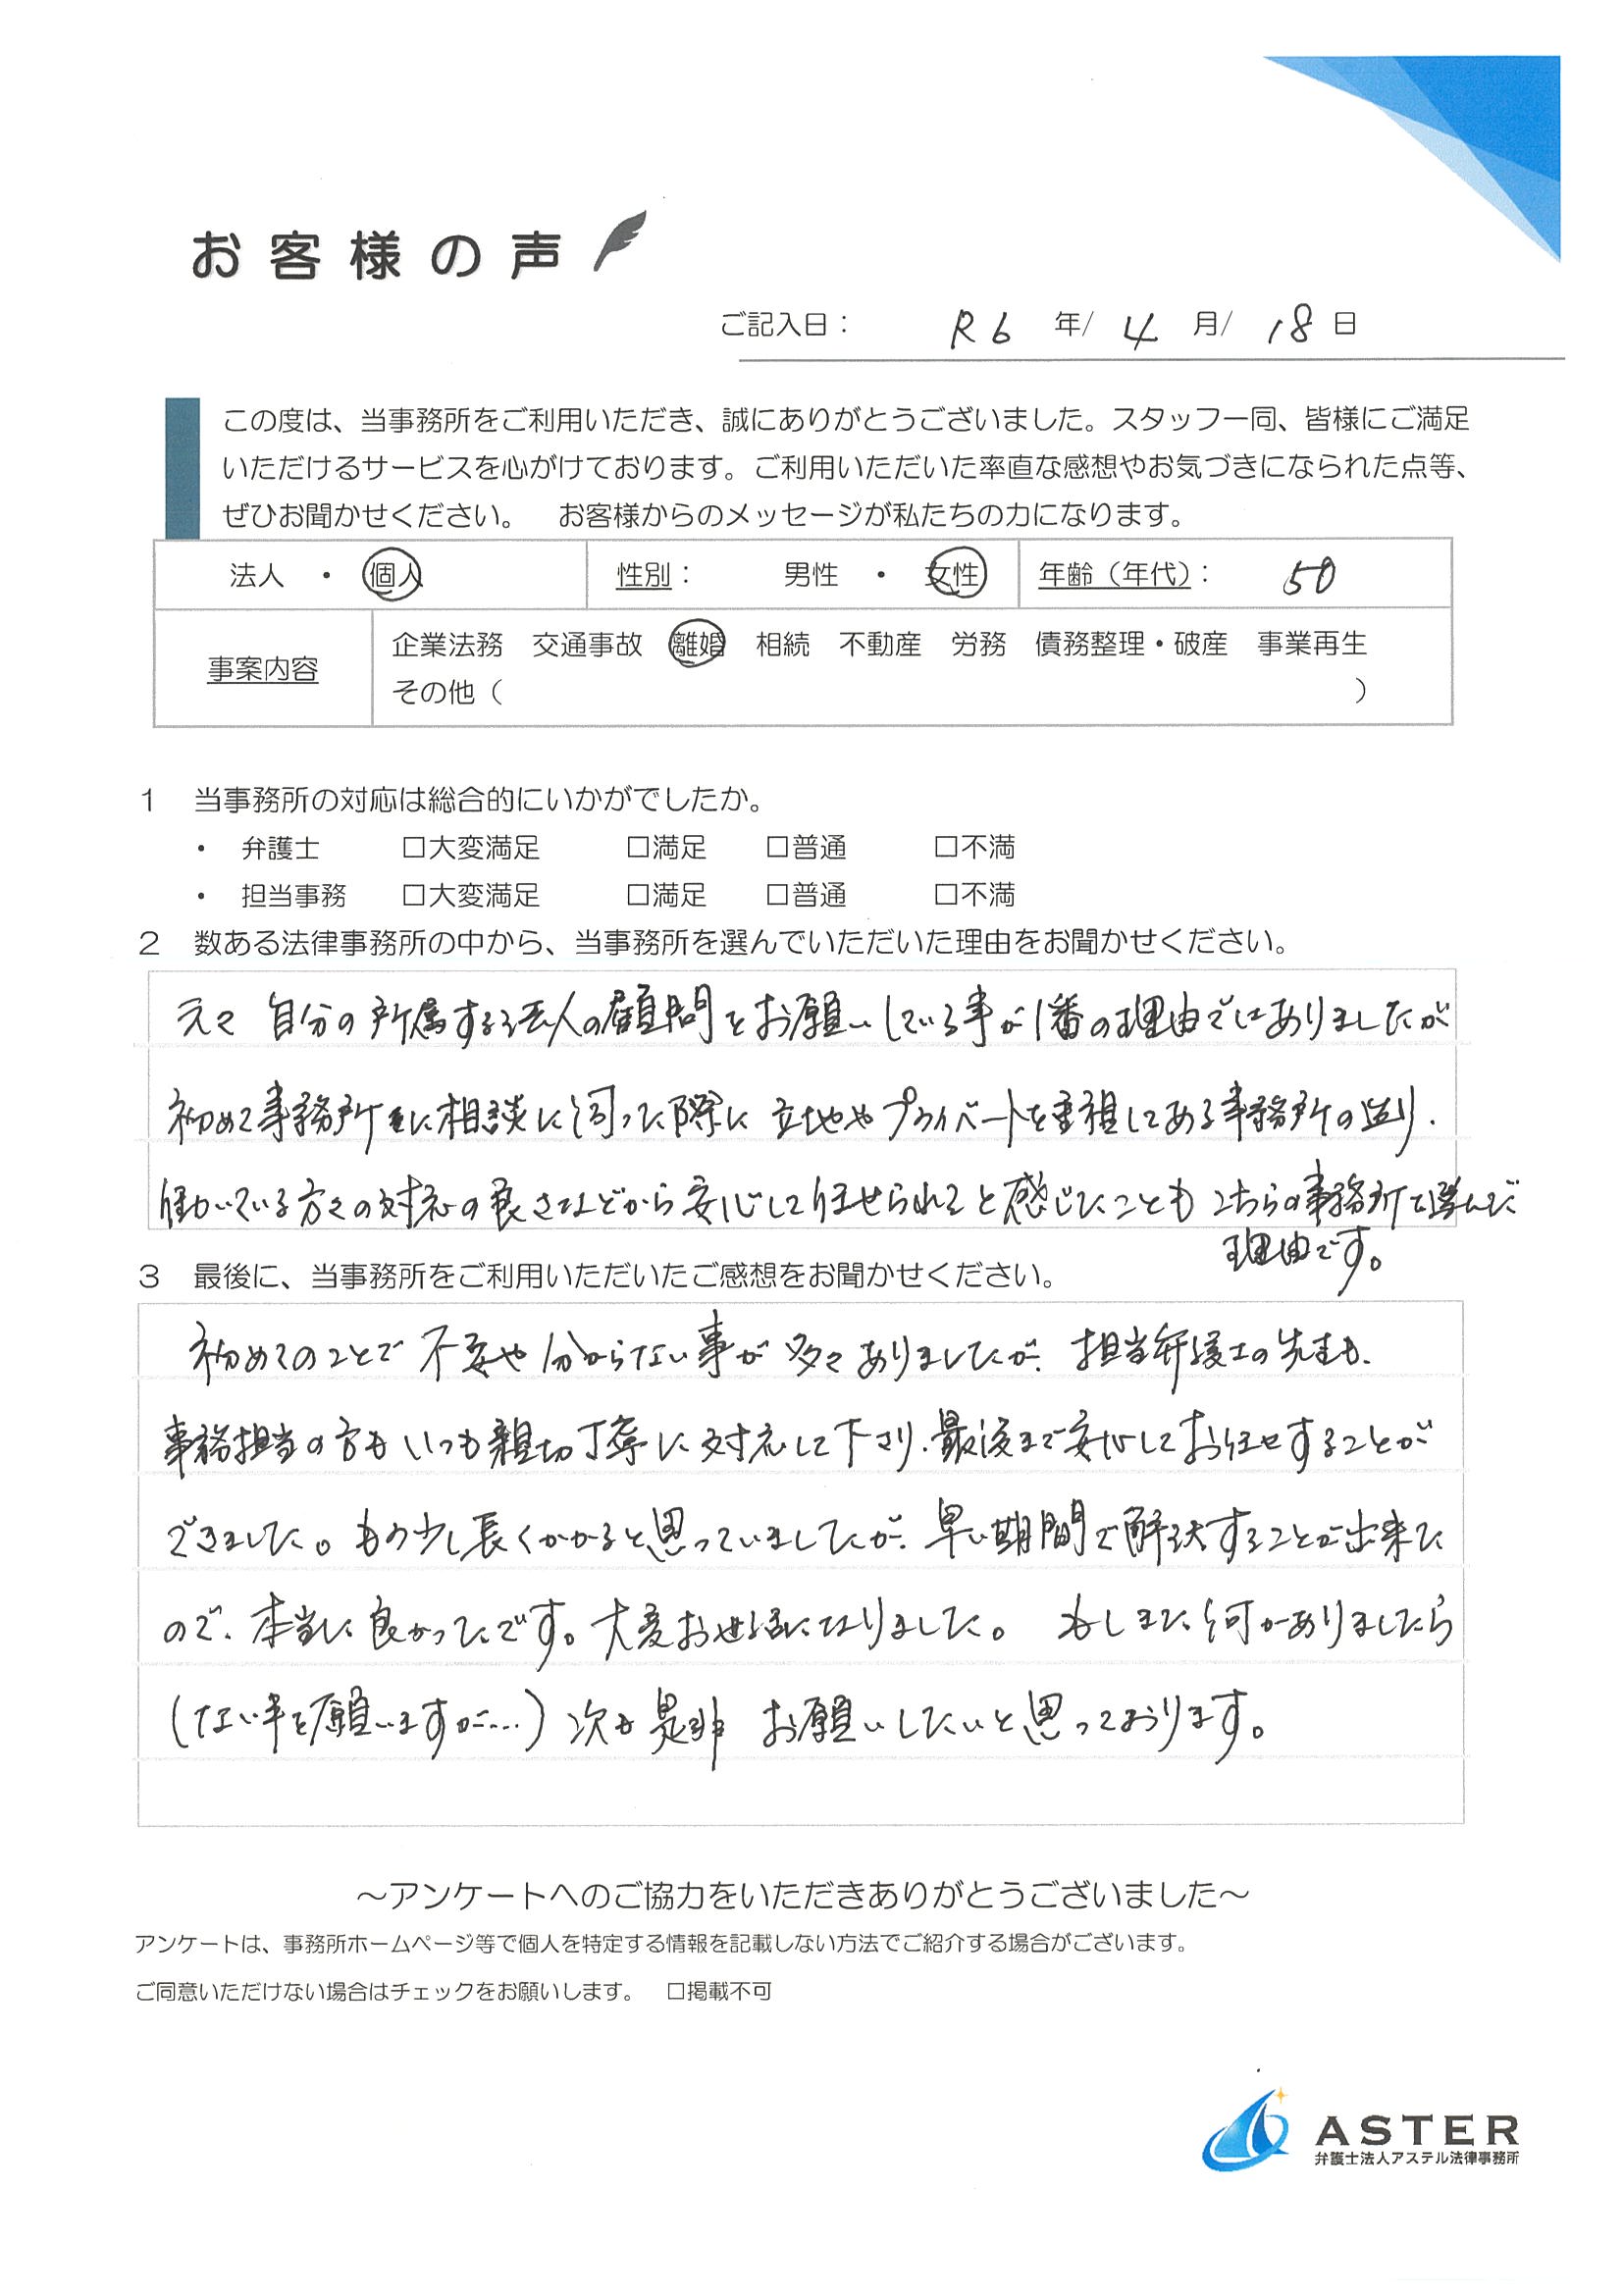 お客様の声
ご記入日： R6 年/ 4 月/ 18 日
この度は、当事務所をご利用いただき、誠にありがとうございました。スタッフ一同、皆様にご満足
いただけるサービスを心がけております。ご利用いただいた率直な感想やお気づきになられた点等、
ぜひお聞かせください。　お客様からのメッセージが私たちの力になります。
法人 ・ 個人　性別： 男性 ・ 女性　年齢（年代）： 50
事案内容
企業法務　交通事故　離婚　相続　不動産　労務　債務整理・破産　事業再生
その他（　　　）
１　当事務所の対応は総合的にいかがでしたか。
・ 弁護士　□大変満足　□満足　□普通　□不満
・ 担当事務　□大変満足　□満足　□普通　□不満
２　数ある法律事務所の中から、当事務所を選んでいただいた理由をお聞かせください。
元々 自分の所属する法人の顧問をお願いしている事が1番の理由ではありましたが
初めて事務所に相談に伺った際に 立地やプライベートを重視してある事務所の造り、
働いている方々の対応の良さなどから安心して任せられると感じたことも こちらの事務所を選んだ
理由です。
３　最後に、当事務所をご利用いただいたご感想をお聞かせください。
初めてのことで 不安や 分からない事が 多々ありましたが、担当弁護士の先生も、
事務担当の方も いつも親切丁寧に 対応して下さり、最後まで安心してお任せすることが
できました。もう少し長くかかると思っていましたが、早い期間で解決することが出来た
ので、本当に良かったです。大変お世話になりました。 もしまた何かありましたら
(ない事を願いますが…) 次も是非 お願いしたいと思っております。
～アンケートへのご協力をいただきありがとうございました～
アンケートは、事務所ホームページ等で個人を特定する情報を記載しない方法でご紹介する場合がございます。
ご同意いただけない場合はチェックをお願いします。　□掲載不可
ASTER
弁護士法人アステル法律事務所